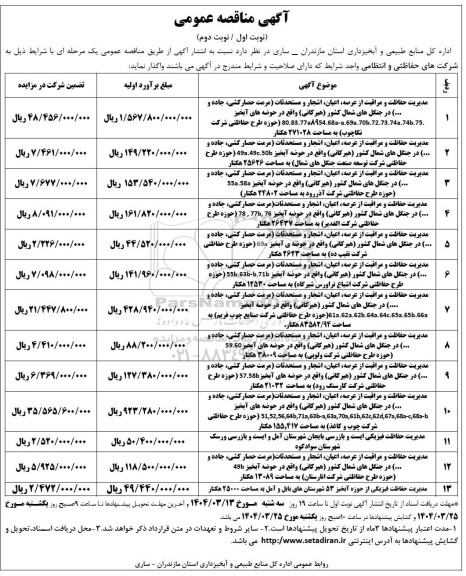 آگهی مناقصه عمومی
(نوبت اول / نوبت دوم)
اداره کل منابع طبیعی و آبخیزداری استان مازندران _ ساری در نظر دارد نسبت به انتشار آگهی از طریق مناقصه عمومی یک مرحله ای با شرایط ذیل به
شرکت های حفاظتی و انتظامی واجد شرایط که دارای صلاحیت و شرایط مندرج در آگهی می باشند واگذار نماید:
ردیف موضوع آگهی مبلغ برآورد اولیه تضمین شرکت در مزایده
مدیریت حفاظت و مراقبت از عرصه، اعیان، اشجار و مستحدثات (مرمت حصارکشی، جاده و
1 ...) در جنگل های شمال کشور (هیرکانی) واقع در حوضه های آبخیز ۱/۵۶۷/۸۰۰/۰۰۰/۰۰۰ ریال ۴۸/۴۵۶/۰۰۰/۰۰۰ ریال
80.83.77a۸۹54.68a-a.69a.70b.72.73.74a.74b.75. (حوزه طرح حفاظتی شرکت
نکاچوب) به مساحت ۲۷۱۰۲۸ هکتار
مدیریت حفاظت و مراقبت از عرصه، اعیان، اشجار و مستحدثات (مرمت حصارکشی، جاده و
۲ ...) در جنگل های شمال کشور (هیرکانی) واقع در حوضه آبخیز 49a.49c.50b (حوزه طرح ۱۴۹/۲۲۰/۰۰۰/۰۰۰ ریال ۷/۴۶۱/۰۰۰/۰۰۰ ریال
حفاظتی شرکت توسعه صنعت جنگل های شمال) به مساحت ۲۵۶۲۶ هکتار
مدیریت حفاظت و مراقبت از عرصه، اعیان، اشجار و مستحدثات (مرمت حصارکشی، جاده و
۳ ...) در جنگل های شمال کشور (هیرکانی) واقع در حوضه آبخیز 55a.58a ۱۵۳/۵۴۰/۰۰۰/۰۰۰ ریال ۷/۶۷۷/۰۰۰/۰۰۰ ریال
(حوزه طرح حفاظتی شرکت آذررود به مساحت ۲۲۸۰۲ هکتار
مدیریت حفاظت و مراقبت از عرصه، اعیان، اشجار و مستحدثات (مرمت حصارکشی، جاده و
۴ ...) در جنگل های شمال کشور (هیرکانی) واقع در حوضه آبخیز 76 ,77b , 78 (حوزه طرح ۱۶۱/۸۲۰/۰۰۰/۰۰۰ ریال ۸/۰۹۱/۰۰۰/۰۰۰ ریال
حفاظتی شرکت الغدیر) به مساحت ۲۶۴۳۷ هکتار
مدیریت حفاظت و مراقبت از عرصه، اعیان، اشجار و مستحدثات (مرمت حصارکشی، جاده و
۵ ...) در جنگل های شمال کشور (هیرکانی) واقع در حوضه ی آبخیز 69a (حوزه طرح حفاظتی ۴۴/۵۲۰/۰۰۰/۰۰۰ ریال ۲/۲۲۶/۰۰۰/۰۰۰ ریال
شرکت نقیب ده) به مساحت ۲۶۲۳ هکتار
مدیریت حفاظت و مراقبت از عرصه، اعیان، اشجار و مستحدثات (مرمت حصارکشی، جاده و
۶ ...) در جنگل های شمال کشور (هیرکانی) واقع در حوضه آبخیز 55b.63b-b.71b (حوزه ۱۴۱/۹۶۰/۰۰۰/۰۰۰ ریال ۷/۰۹۸/۰۰۰/۰۰۰ ریال
طرح حفاظتی شرکت اشباع تراورس شیرگاه) به مساحت ۱۲۵۳۰ هکتار
مدیریت حفاظت و مراقبت از عرصه، اعیان، اشجار و مستحدثات (مرمت حصارکشی، جاده و
۷ ....) در جنگل های شمال کشور (هیرکانی) واقع در حوضه آبخیز ۴۲۸/۹۴۰/۰۰۰/۰۰۰ ریال ۲۱/۴۴۷/۸۰۰/۰۰۰ ریال
61a.62a.62b.64a.64c.65a.65b.66a (حوزه طرح حفاظتی شرکت صنایع چوب فریم) به
مساحت ۸۳۵۸۲/۹۴ هکتار
مدیریت حفاظت و مراقبت از عرصه، اعیان، اشجار و مستحدثات (مرمت حصارکشی، جاده و
۸ ...) در جنگل های شمال کشور (هیرکانی) واقع در حوضه های آبخیز 59.60 ۸۸/۲۰۰/۰۰۰/۰۰۰ ریال ۴/۴۱۰/۰۰۰/۰۰۰ ریال
(حوزه طرح حفاظتی شرکت ولویی) به مساحت ۳۸۰۰۹ هکتار
مدیریت حفاظت و مراقبت از عرصه، اعیان، اشجار و مستحدثات (مرمت حصارکشی، جاده و
۹ ...) در جنگل های شمال کشور (هیرکانی) واقع در حوضه های آبخیز 57.58b (حوزه طرح ۱۲۷/۳۸۰/۰۰۰/۰۰۰ ریال ۶/۳۶۹/۰۰۰/۰۰۰ ریال
حفاظتی شرکت کارسنگ رود) به مساحت ۲۱۰۳۲ هکتار
مدیریت حفاظت و مراقبت از عرصه، اعیان، اشجار و مستحدثات (مرمت حصارکشی، جاده و
۱۰ ...) در جنگل های شمال کشور (هیرکانی) واقع در حوضه های آبخیز ۹۲۳/۲۸۰/۰۰۰/۰۰۰ ریال ۳۵/۵۶۵/۶۰۰/۰۰۰ ریال
51,52,56,64b,71a,63b-a,63a,70a,61b,62c,62d,67a,68a-c,68a-b (حوزه طرح حفاظتی
شرکت چوب و کاغذ) به مساحت ۱۵۵,۴۱۷ هکتار
۱۱ مدیریت حفاظت فیزیکی ایست و بازرسی بایجان شهرستان آمل و ایست و بازرسی ورسک ۵۰/۴۰۰/۰۰۰/۰۰۰ ریال ۲/۵۲۰/۰۰۰/۰۰۰ ریال
شهرستان سوادکوه
مدیریت حفاظت و مراقبت از عرصه، اعیان، اشجار و مستحدثات (مرمت حصارکشی، جاده و
۱۲ ...) در جنگل های شمال کشور (هیرکانی) واقع در حوضه های آبخیز 49b ۱۱۸/۵۰۰/۰۰۰/۰۰۰ ریال ۵/۹۲۵/۰۰۰/۰۰۰ ریال
(حوزه طرح حفاظتی شرکت انارستان) به مساحت ۱۳۰۸۹ هکتار
۱۳ مدیریت حفاظت فیزیکی از حوزه آبخیز ۵۳ شهرستان های بابل و آمل به مساحت ۲۵۰۰۰ هکتار ۴۹/۴۴۰/۰۰۰/۰۰۰ ریال ۲/۴۷۲/۰۰۰/۰۰۰ ریال
*مهلت دریافت اسناد از تاریخ انتشار آگهی نوبت اول تا ساعت ۱۹ روز سه شنبه مورخ ۱۴۰۴/۰۳/۱۳ و آخرین مهلت تحویل پیشنهادها تا ساعت ۹صبح روز یکشنبه مورخ
۱۴۰۴/۰۳/۲۵ و گشایش پیشنهادها در ساعت ۱۰صبح روز یکشنبه مورخ ۱۴۰۴/۰۳/۲۵ می باشد.
۱-مدت اعتبار پیشنهادها ۳ماه از تاریخ تحویل پیشنهادها است.۲- سایر شروط و تعهدات در متن قرارداد ذکر خواهد شد.۳-محل دریافت اسناد،تحویل و
گشایش پیشنهادها به آدرس اینترنتی http:/www.setadiran.ir می باشد.
روابط عمومی اداره کل منابع طبیعی و آبخیزداری استان مازندران – ساری